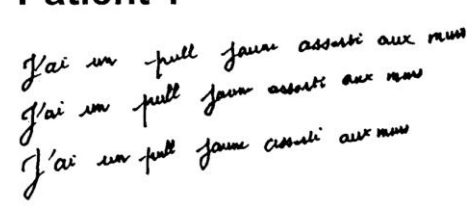 J'ai un pull jaune assorti aux murs
J'ai un pull jaune assorti aux murs
J'ai un pull jaune assorti aux murs